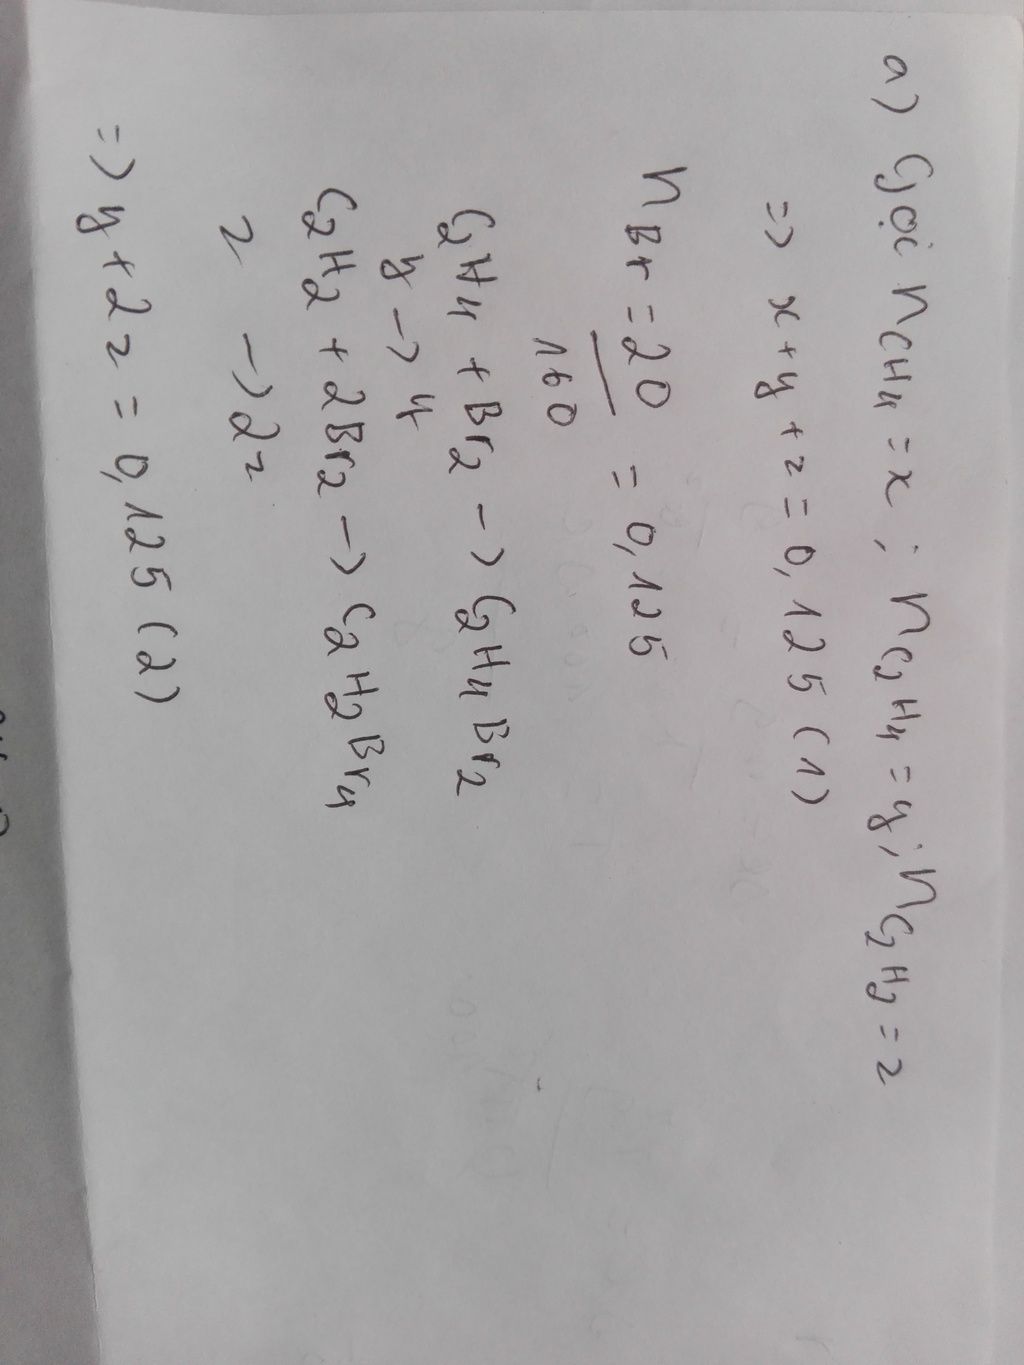 a) Gọi nCH4 = x ; nC2H4 = y ; nC2H2 = z
=> x + y + z = 0,125 (1)
nBr = 20/160 = 0,125
C2H4 + Br2 -> C2H4Br2
y -> y
C2H2 + 2Br2 -> C2H2Br4
z -> 2z
=> y + 2z = 0,125 (2)